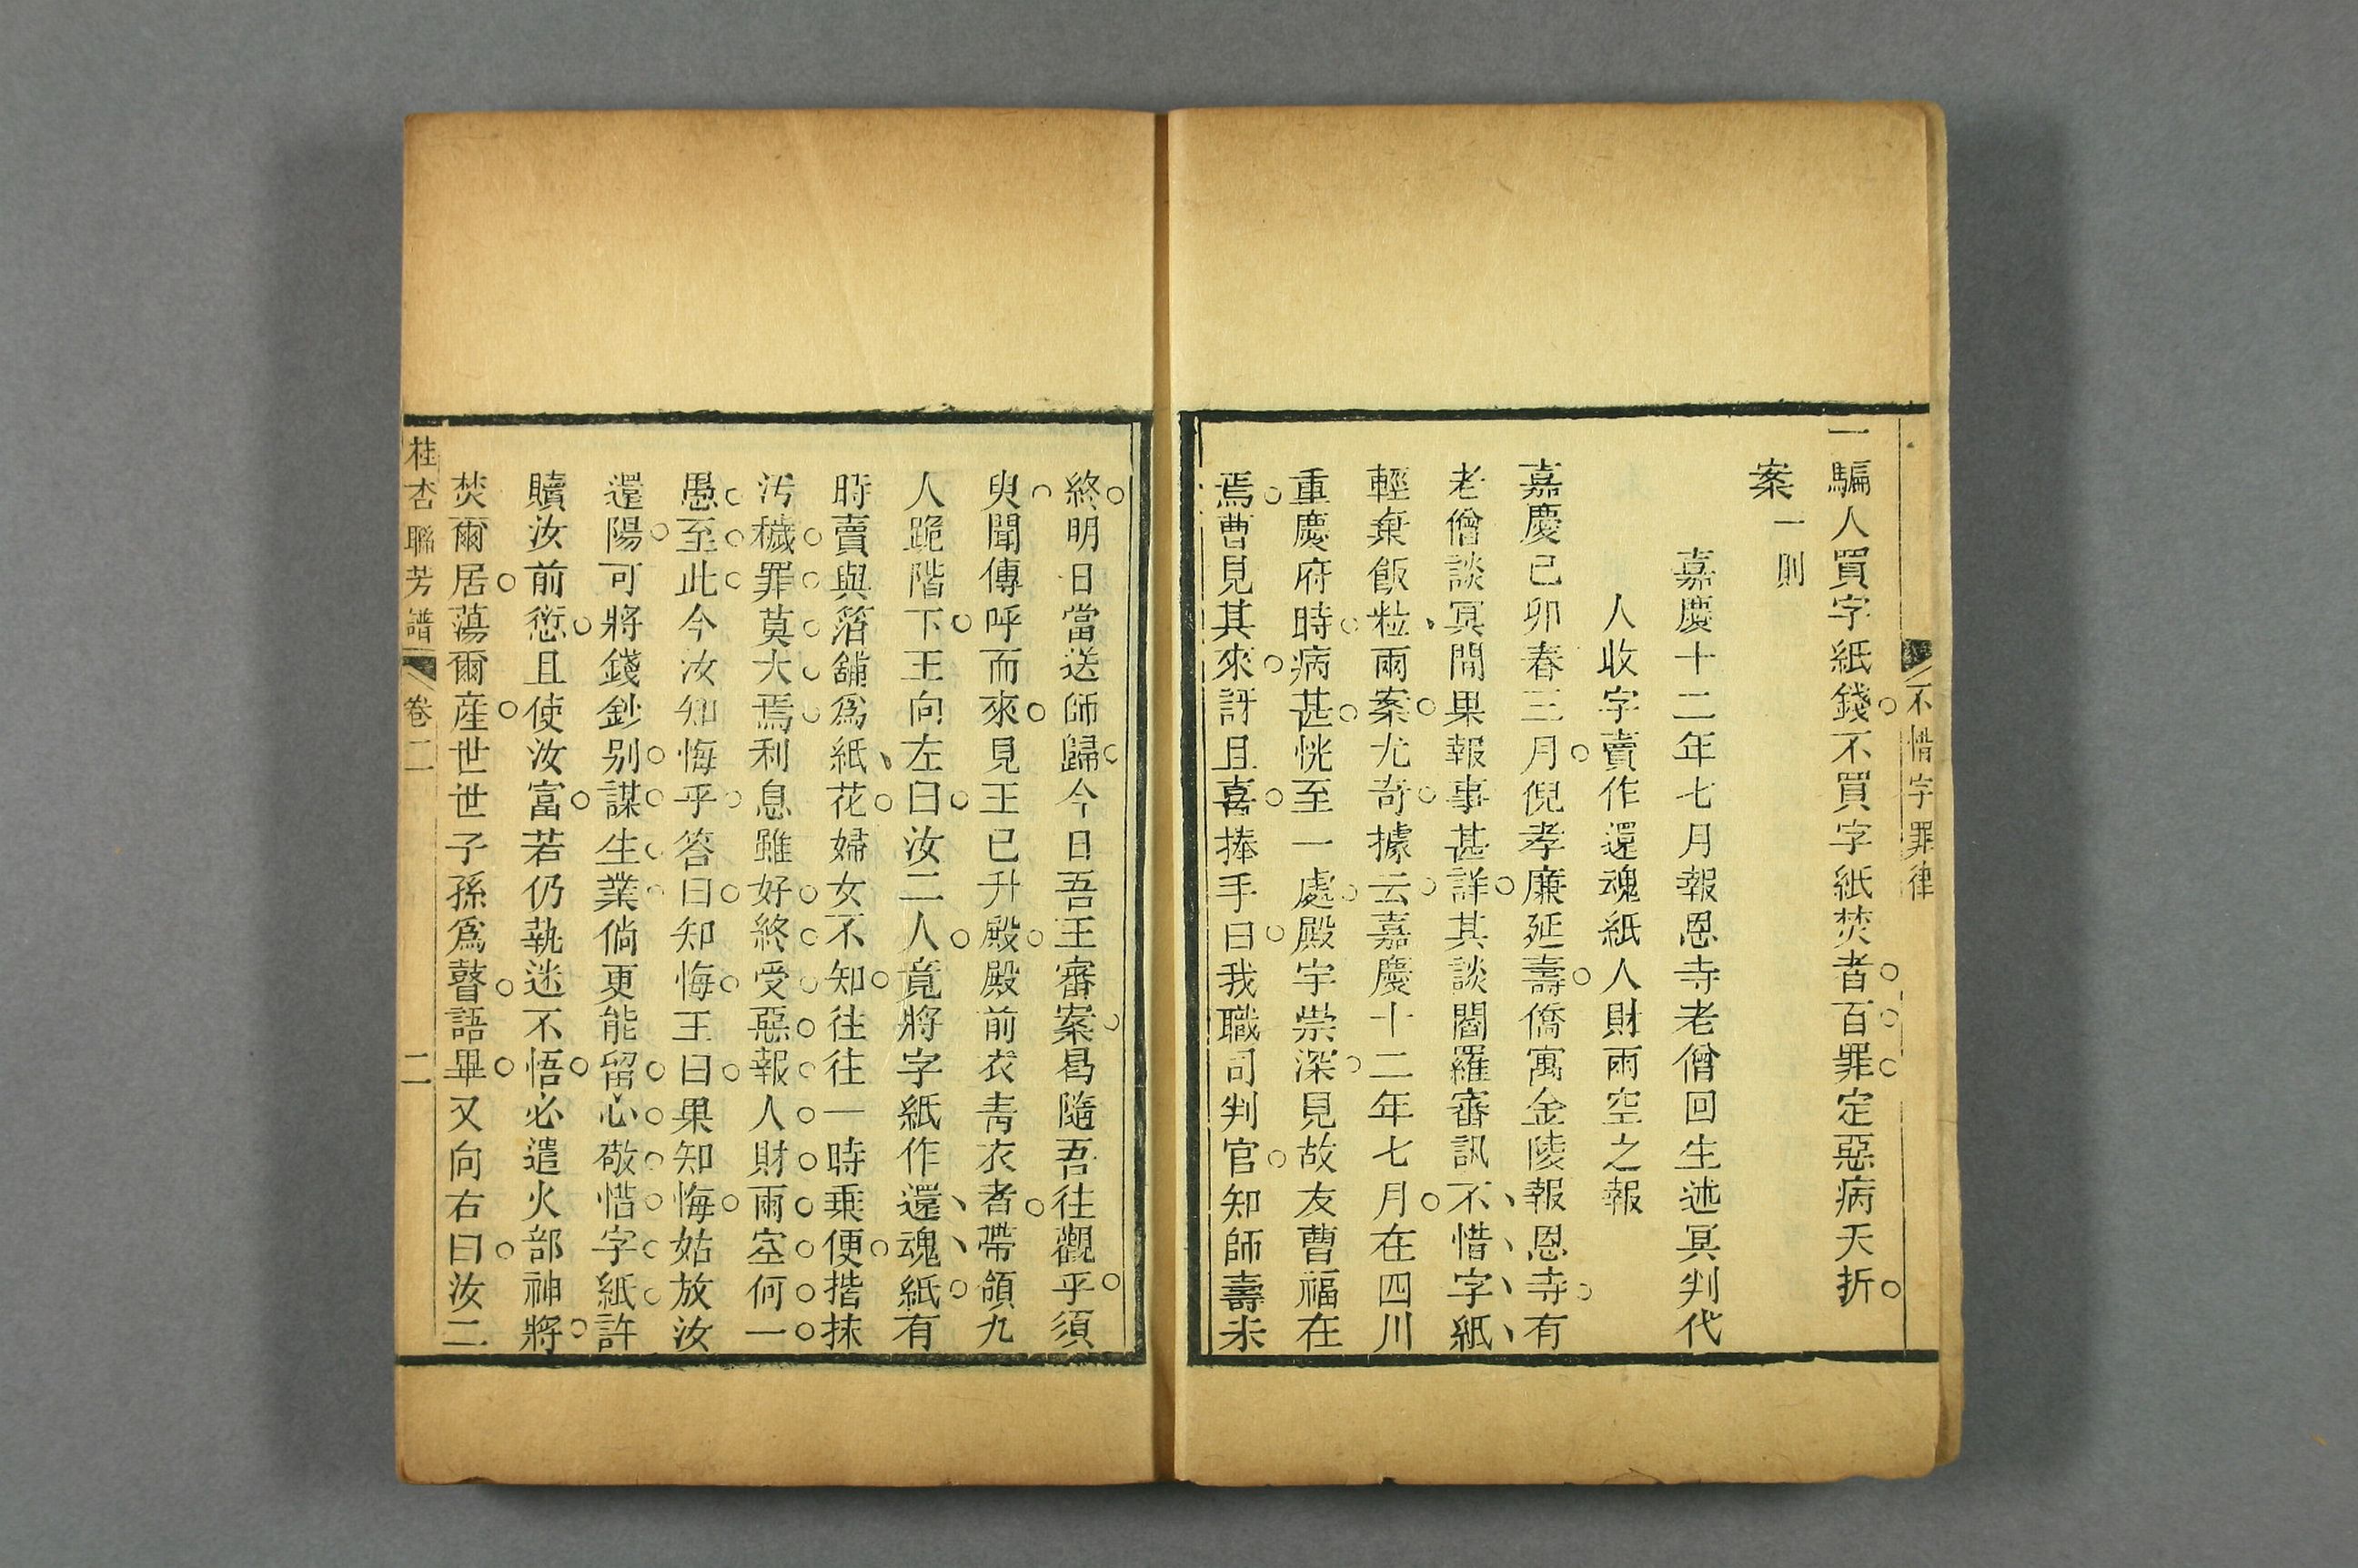 不惜字罪律
一騙人買字紙錢不買字紙焚者百罪定惡病夭折
案一則
嘉慶十二年七月報恩寺老僧回生述冥判代
人收字賣作還魂紙人財兩空之報
嘉慶己卯春三月倪孝廉延壽僑寓金陵報恩寺有
老僧談冥間果報事甚詳其談閻羅審訊不惜字紙
輕棄飯粒兩案尤奇據云嘉慶十二年七月在四川
重慶府時病甚恍至一處殿宇崇深見故友曹福在
焉曹見其來訝且喜捧手曰我職司判官知師壽未
終明日當送師歸今日吾王審案曷隨吾往觀乎須
臾聞傳呼而來見王已升殿殿前衣青衣者帶領九
人跪階下王向左曰汝二人竟將字紙作還魂紙有
時賣與箔舖為紙花婦女不知往往一時乘便揩抹
污穢罪莫大焉利息雖好終受惡報人財兩空何一
愚至此今汝知悔乎答曰知悔王曰果知悔姑放汝
還陽可將錢鈔别謀生業倘更能留心敬惜字紙許
贖汝前愆且使汝富若仍執迷不悟必遣火部神將
焚爾居蕩爾産世世子孫為瞽語畢又向右曰汝二
桂杏聯芳譜 卷二 二